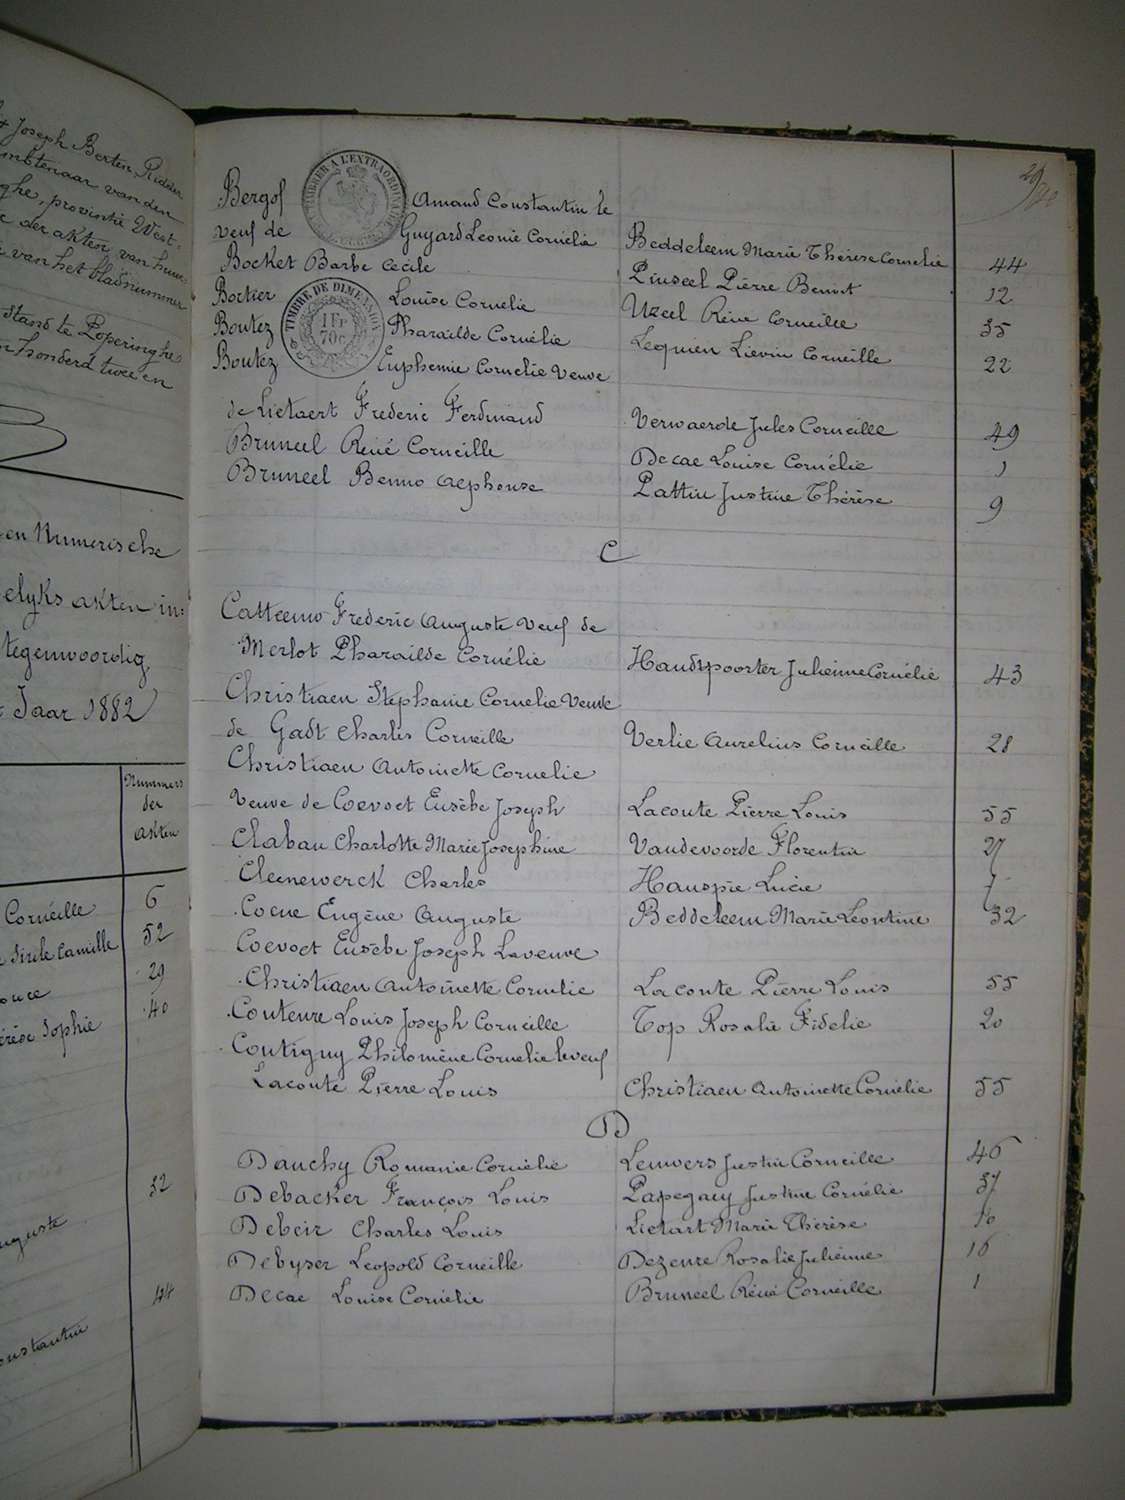 Joseph Berten, Ridder
ambtenaar van den
provintie West-
der akten van huwe-
van het bladnummer
stand te Poperinghe
honderd twee en
en Numerische
elyks akten in:
tegenwoordig
Jaar 1882
Nummers
der
akten
Corneille 6
Camille 52
29
Sophie 40
32
44
TIMBRER A L'EXTRAORDINAIRE
Bergof Amand Constantin le
veuf de Guyard Leonie Cornélie Beddeleem Marie Thérèse Cornelie 44
Bocket Barbe Cecile Pinseel Pierre Benoit 12
TIMBRE DE DIMENSION
1 Fr
70c
Bortier Louise Cornelie Uzeel Réne Corneille 35
Boutez Pharaïlde Cornélie Lequien Lievin Corneille 22
Boutez Euphemie Cornelie Veuve
de Lietaert Frederic Ferdinand Verwaerde Jules Corneille 49
Bruneel René Corneille Decae Louise Cornélie 1
Bruneel Benno Alphonse Pattin Justine Thérèse 9
C
Catteeuw Frederic Auguste Veuf de
Merlot Pharaïlde Cornélie Handspoorter Julienne Cornélie 43
Christiaen Stephanie Cornelie Veuve
de Gadt Charles Corneille Verlie Aurelius Corneille 28
Christiaen Antoinette Cornelie
Veuve de Coevoet Eusèbe Joseph Laconte Pierre Louis 55
Clabau Charlotte Marie Josephine Vandevoorde Florentin 27
Cleenewerck Charles Hauspie Lucie 7
Cocue Eugène Auguste Beddeleem Marie Leontine 32
Coevoet Eusèbe Joseph La veuve
Christiaen Antoinette Cornelie Laconte Pierre Louis 55
Couteure Louis Joseph Corneille Top Rosalie Fidelie 20
Coutigny Philomène Cornelie le veuf
Laconte Pierre Louis Christiaen Antoinette Cornélie 55
D
Dauchy Romanie Cornélie Leuwers Justin Corneille 46
Debacker François Louis Papegaey Justine Cornélie 37
Debeir Charles Louis Lietart Marie Thérèse
Debyser Leopold Corneille Dezeure Rosalie Julienne 16
Decae Louise Cornélie Bruneel Réné Corneille 1